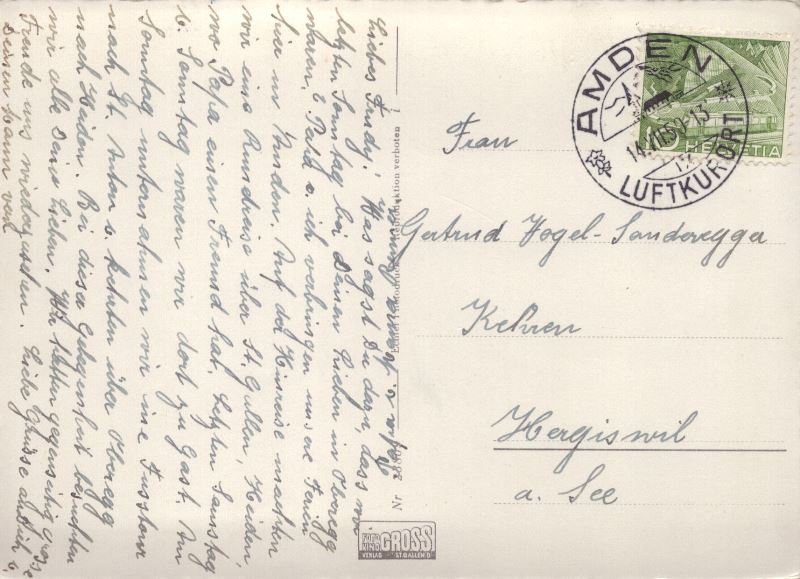 Liebes Trudj! Was sagst Du dazu, dass wir
letzten Sonntag bei Deinen Lieben in Oberegg
waren. Papa u. ich verbringen unsere Ferien
hier in Amden. Auf der Hinreise machten
wir eine Rundreise über St. Gallen, Heiden
wo Papa einen Freund hat. Letzten Samstag
u. Sonntag waren wir dort zu Gast. Am
Sonntag unternahmen wir eine Fusstour
nach St. Anton u. kehrten über Oberegg
nach Heiden. Bei dieser Gelegenheit besuchten
wir alle Deine Lieben. Wir hatten gegenseitig grosse
Freude uns wiederzusehen. Liebe Grüsse an Dich u.
Deinen Mann von
Papa u.
Nr.
Reproduktion verboten
FOTO GROSS
VERLAG ST. GALLEN
AMDEN
14.VII.59-13
LUFTKURORT
HELVETIA
Frau
Gertrud Vogel-Sonderegger
Kehren
Hergiswil
a. See